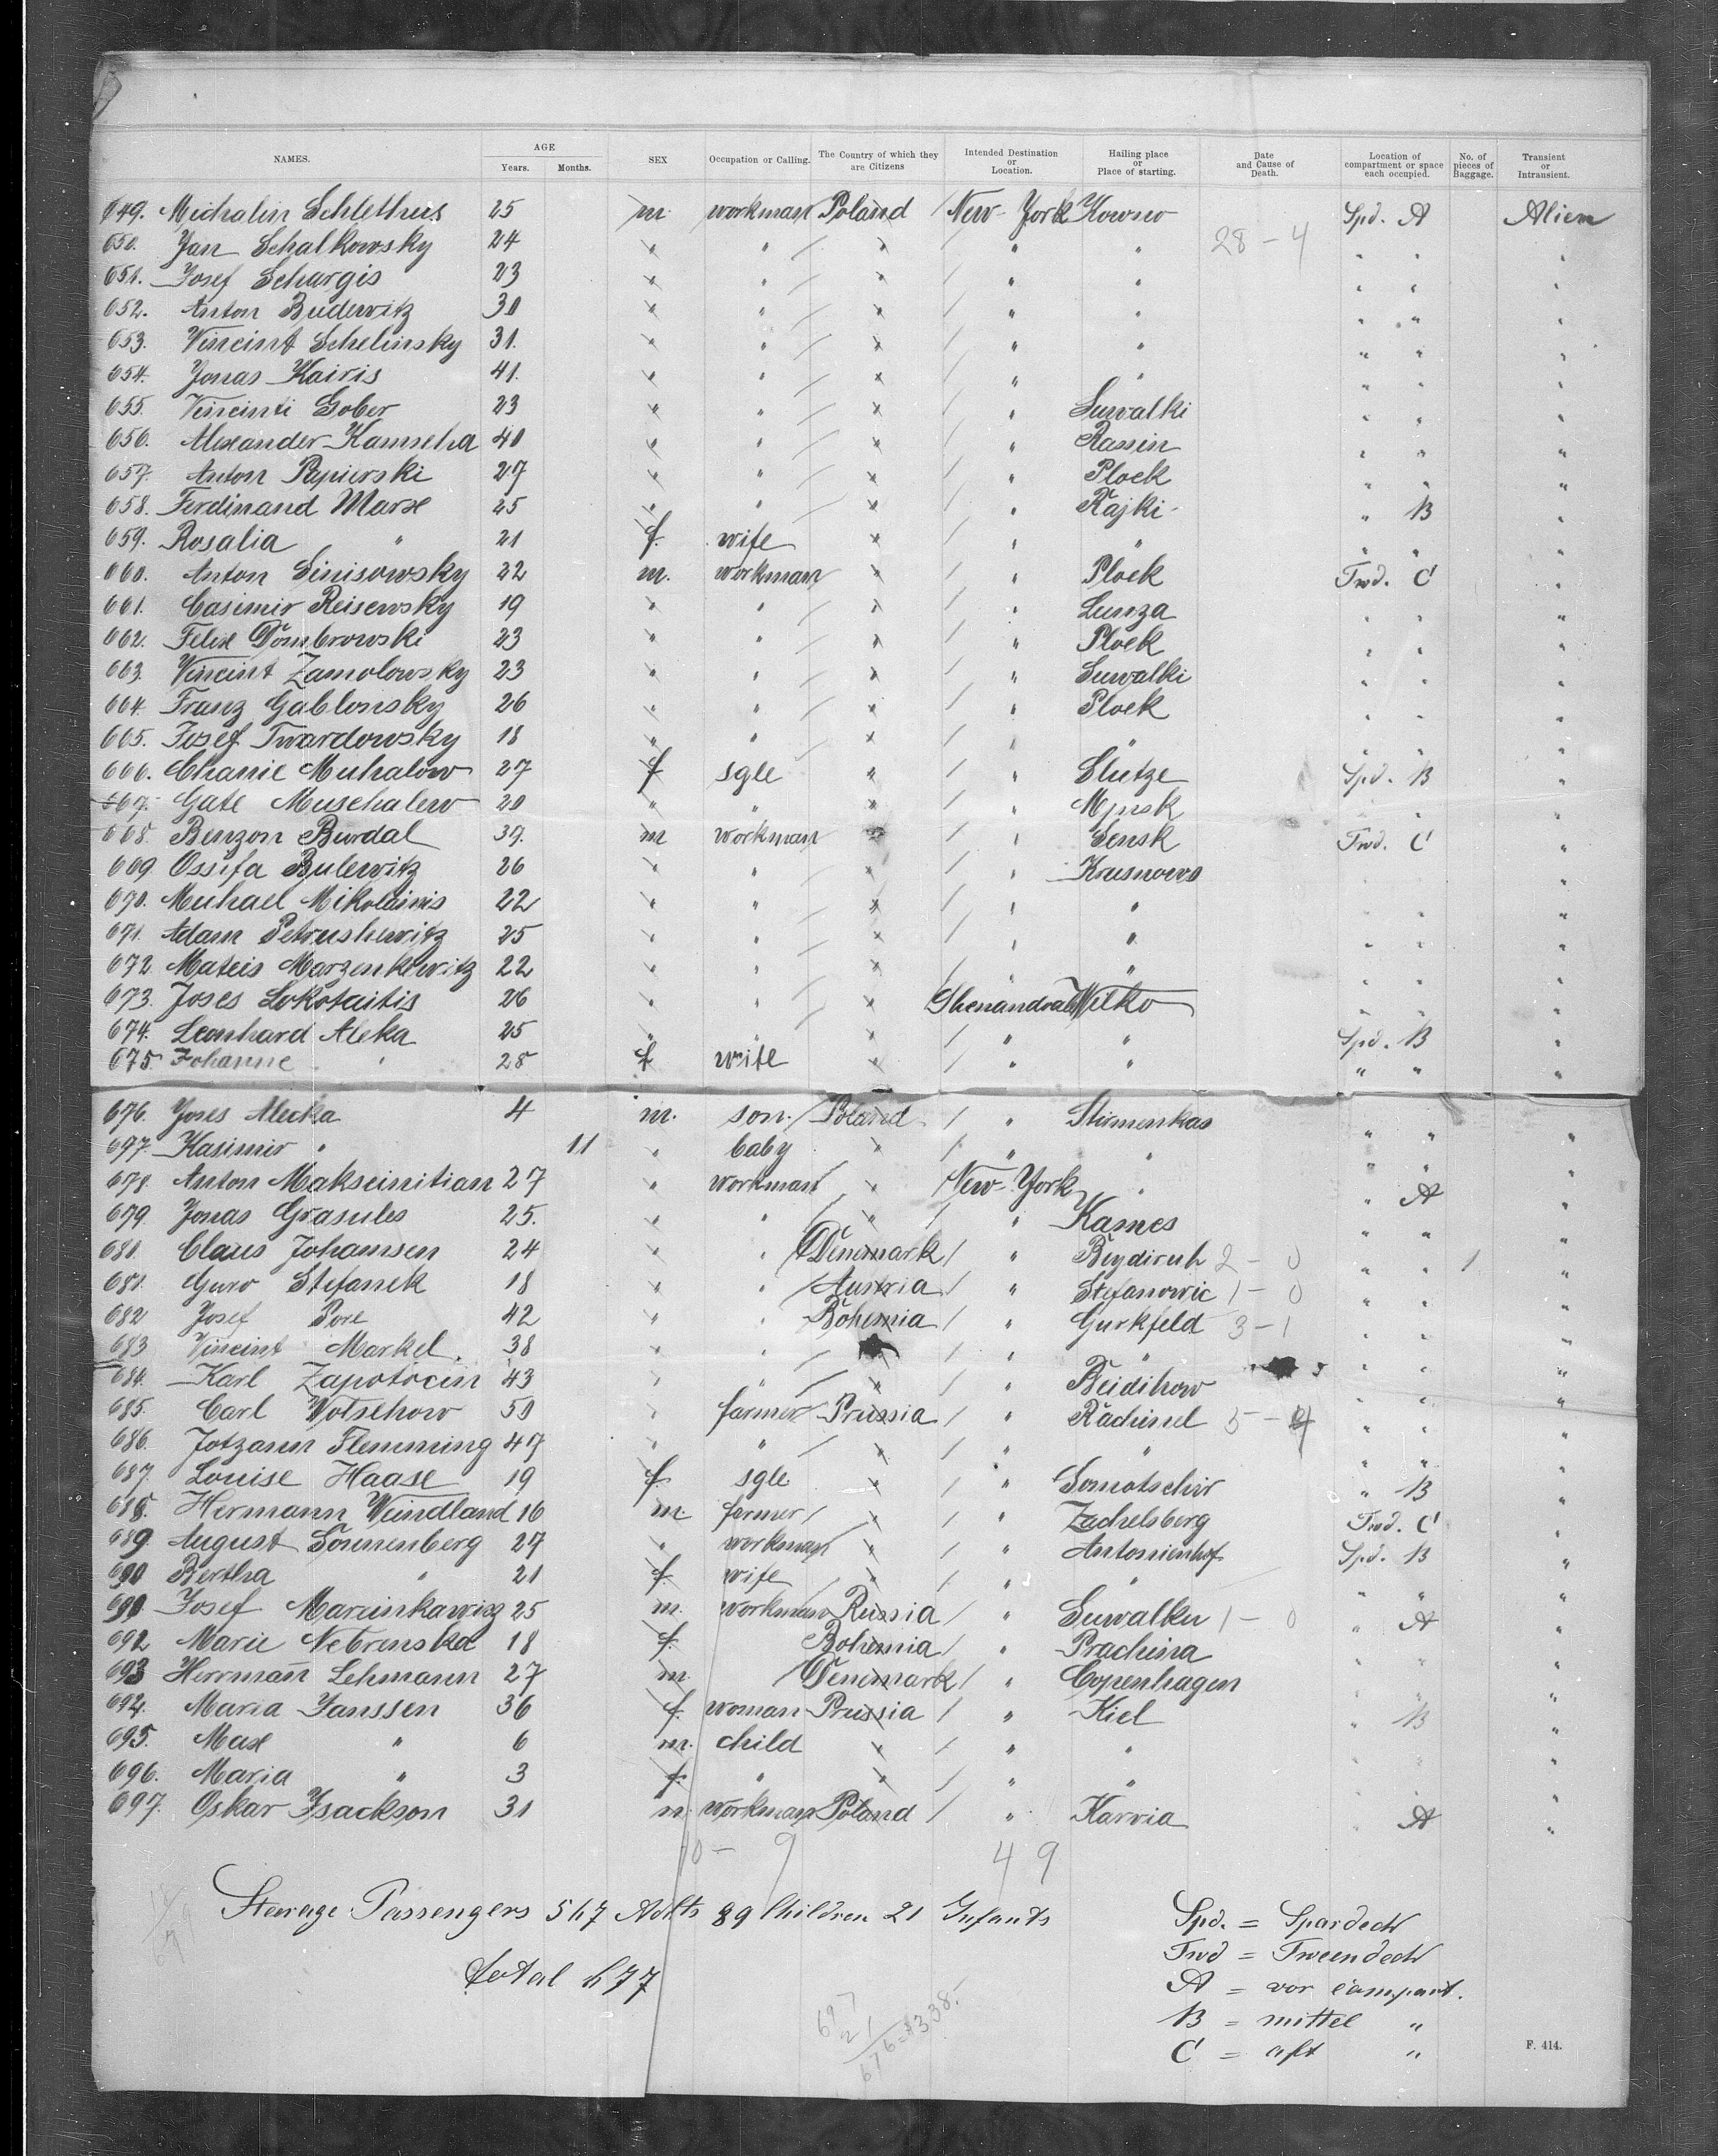 NAMES. AGE Years. Months. SEX Occupation or Calling. The Country of which they are Citizens Intended Destination or Location. Hailing place or Place of starting. Date and Cause of Death. Location of compartment or space each occupied. No. of pieces of Baggage. Transient or Intransient.
649. Michalin Schlethus 25 m. workman Poland New-York Kowno Spd. A Alien
650. Jan Schalkowsky 24 " " " " " 28-4 " " "
651. Josef Schargis 23 " " " " " " " "
652. Anton Budewitz 30 " " " " " " " "
653. Vincint Schelinsky 31. " " " " " " " "
654. Jonas Kairis 41. " " " " " " " "
655. Vincinti Gober 23 " " " " Suwalki " " "
656. Alexander Kamscha 40 " " " " Rassin " " "
657. Anton Papierski 27 " " " " Plock " " "
658. Ferdinand Marx 25 " " " " Rajki " B "
659. Rosalia " 21 f. wife " " " " " "
660. Anton Sinisowsky 22 m. workman " " Plock Twd. C "
661. Casimir Reisewsky 19 " " " " Lunza " " "
662. Felix Dombrowski 23 " " " " Plock " " "
663. Vincint Zamolowsky 23 " " " " Suwalki " " "
664. Franz Gablonsky 26 " " " " Plock " " "
665. Josef Twardowsky 18 " " " " " " " "
666. Chanie Muhalow 27 f sgle " " Slutze Spd. B "
667. Gate Muschalew 20 " " " " Mpisk " " "
668. Benzon Burdal 39. m workman " " Sensk Twd. C "
669 Ossifa Bulewitz 26 " " " " Krusnowo " "
670. Muhael Mikolainis 22 " " " " " " " "
671. Adam Petrushewitz 25 " " " " " " " "
672 Mateis Marzenkewitz 22 " " " " " " " "
673. Joses Lokotaitis 26 " " " Shenandoah Wilko " " "
674. Leonhard Aleka 25 " " " " " Spd. B "
675. Johanne " 28 f wife " " " " " "
676. Joses Alecka 4 m. son. Poland " Stirmenkas " " "
677. Kasimir " 11 " baby " " " " " "
678. Anton Makseinitian 27 " workman " New-York " " A "
679 Jonas Grasules 25. " " " " Kames " " "
680. Claus Johannsen 24 " " Denemark " Beydiruh 2-0 " " 1 "
681. Guro Stefanek 18 " " Austria " Stefanowic 1-0 " " "
682 Josef Pore 42 " " Bohemia " Gurkfeld 3-1 " " "
683 Vincint Markel. 38 " " " " " " "
684. Karl Zapotocin 43 " " " " Beidihow " " "
685. Carl Wotschow 50 " farmer Prussia " Rachinel 5-4 " " "
686. Jotzann Flemming 47 " " " " " " " "
687. Louise Haase 19 f. sgle. " " Somotschir " B "
688. Hermann Weindland 16 m. farmer " " Zachelsberg Twd. C "
689. August Sonnenberg 27 " workman " " Antonienhof Spd. B "
690 Bertha " 21 f. wife " " " " " "
691. Josef Marcinkawitz 25 m. workman Russia " Suwalku 1-0 " A "
692 Marie Nebrenska 18 f. Bohemia " Prachina " " "
693 Herrmann Lehmann 27 m. Denemark " Copenhagen " " "
694. Maria Janssen 36 f. woman Prussia " Kiel " B "
695. Max " 6 m. child " " " " " "
696. Maria " 3 f. " " " " " " "
697. Oskar Isackson 31 m. workman Poland " Karvia " A "
10-9 49
Steerage Passengers 567 Adlts 89 Children 21 Infants
total 677
Spd. = Spardeck
Twd = Tweendeck
A = vor compart.
B = mittel "
C = aft "
697
21
676=$338.-
F. 414.